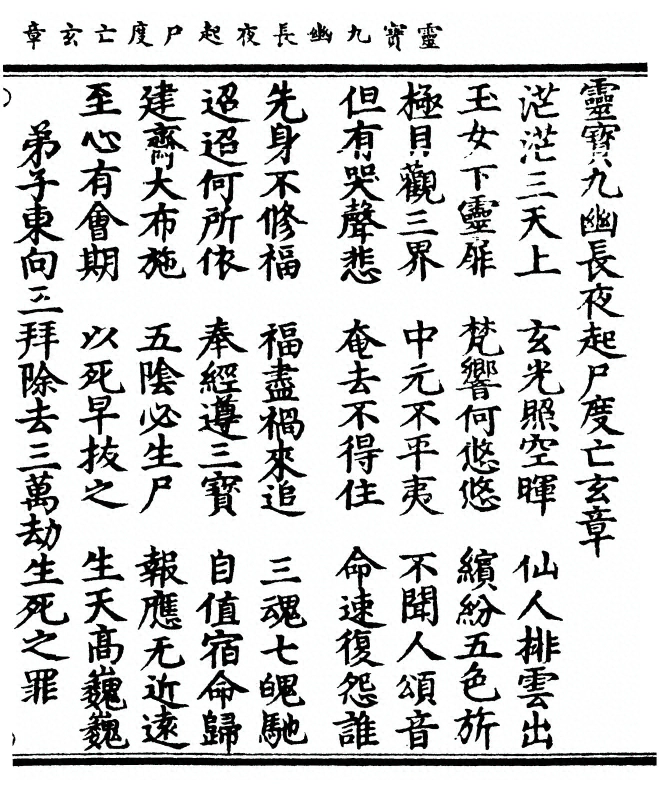 靈寶九幽長夜起尸度亡玄章
靈寶九幽長夜起尸度亡玄章
茫茫三天上 玄光照空暉 仙人排雲出
玉女下靈扉 梵響何悠悠 繽紛五色旂
極貝觀三界 中元不平夷 不聞人頌音
但有哭聲悲 奄去不得住 命速復怨誰
先身不修福 福盡禍來追 三魂七魄馳
迢迢何所依 奉經遵三寶 自值宿命歸
建齋大布施 五陰必生尸 報應无近遠
至心有會期 以死早拔之 生天高巍巍
弟子東向三拜除去三萬劫生死之罪